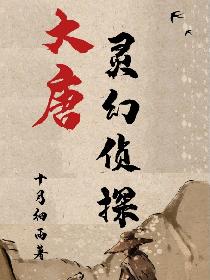 大唐
灵幻侦探
十月细雨著